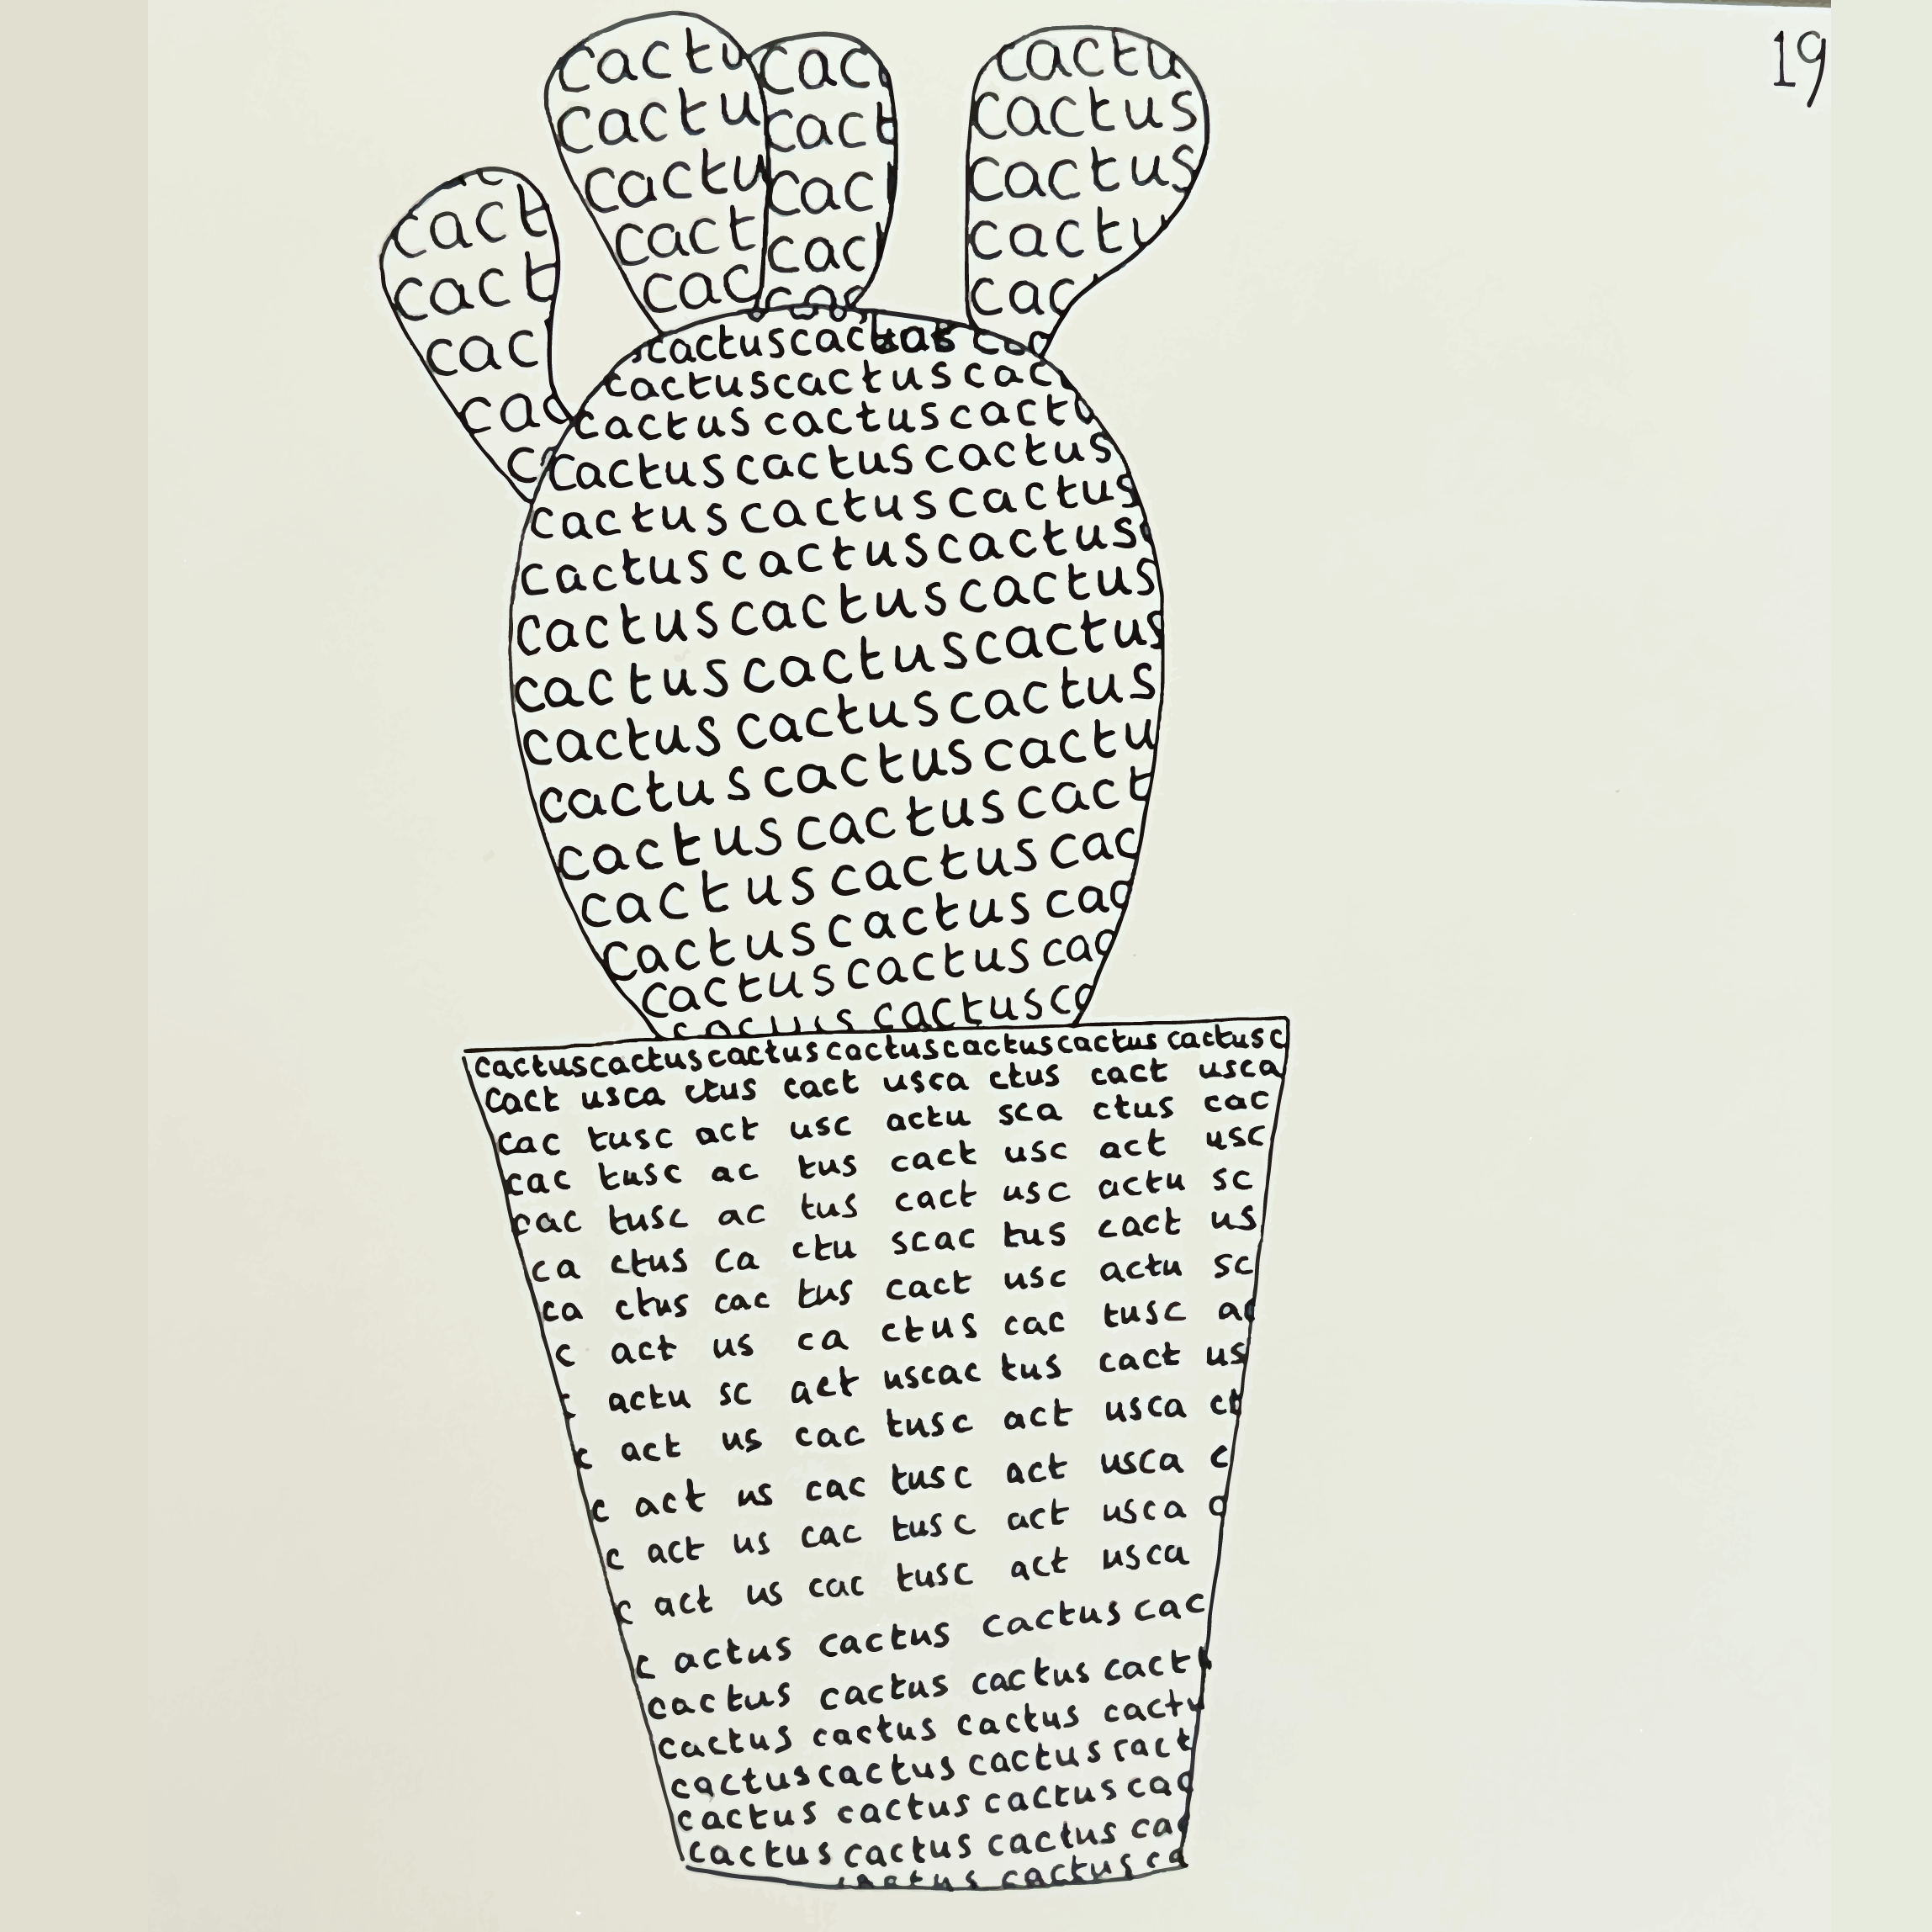 19
cactu
cactu
cactu
cact
cac
cac
cact
cac
cac
cac
cactu
cactus
cactus
cactu
cac
cact
cact
cac
cac
c
cactuscac
cactuscactuscac
cactus cactus cact
cactus cactus cactus
cactus cactus cactus
cactus cactus cactus
cactus cactus cactus
cactus cactus cactus
cactus cactus cactus
cactus cactus cactu
cactus cactus cact
cactus cactus cac
cactus cactus cac
cactus cactus cac
cactus ca
cactuscactuscactuscactuscactuscactus cactusc
cact usca ctus cact usca ctus cact usca
cac tusc act usc actu sca ctus cac
cac tusc ac tus cact usc act usc
cac tusc ac tus cact usc actu sc
ca ctus ca ctu scac tus cact us
ca ctus cac tus cact usc actu sc
c act us ca ctus cac tusc ac
c actu sc act uscac tus cact us
c act us cac tusc act usca ct
c act us cac tusc act usca c
c act us cac tusc act usca c
c act us cac tusc act usca
c actus cactus cactus cac
cactus cactus cactus cact
cactus cactus cactus cactu
cactus cactus cactus cact
cactus cactus cactus cac
cactus cactus cactus ca
cactus ca